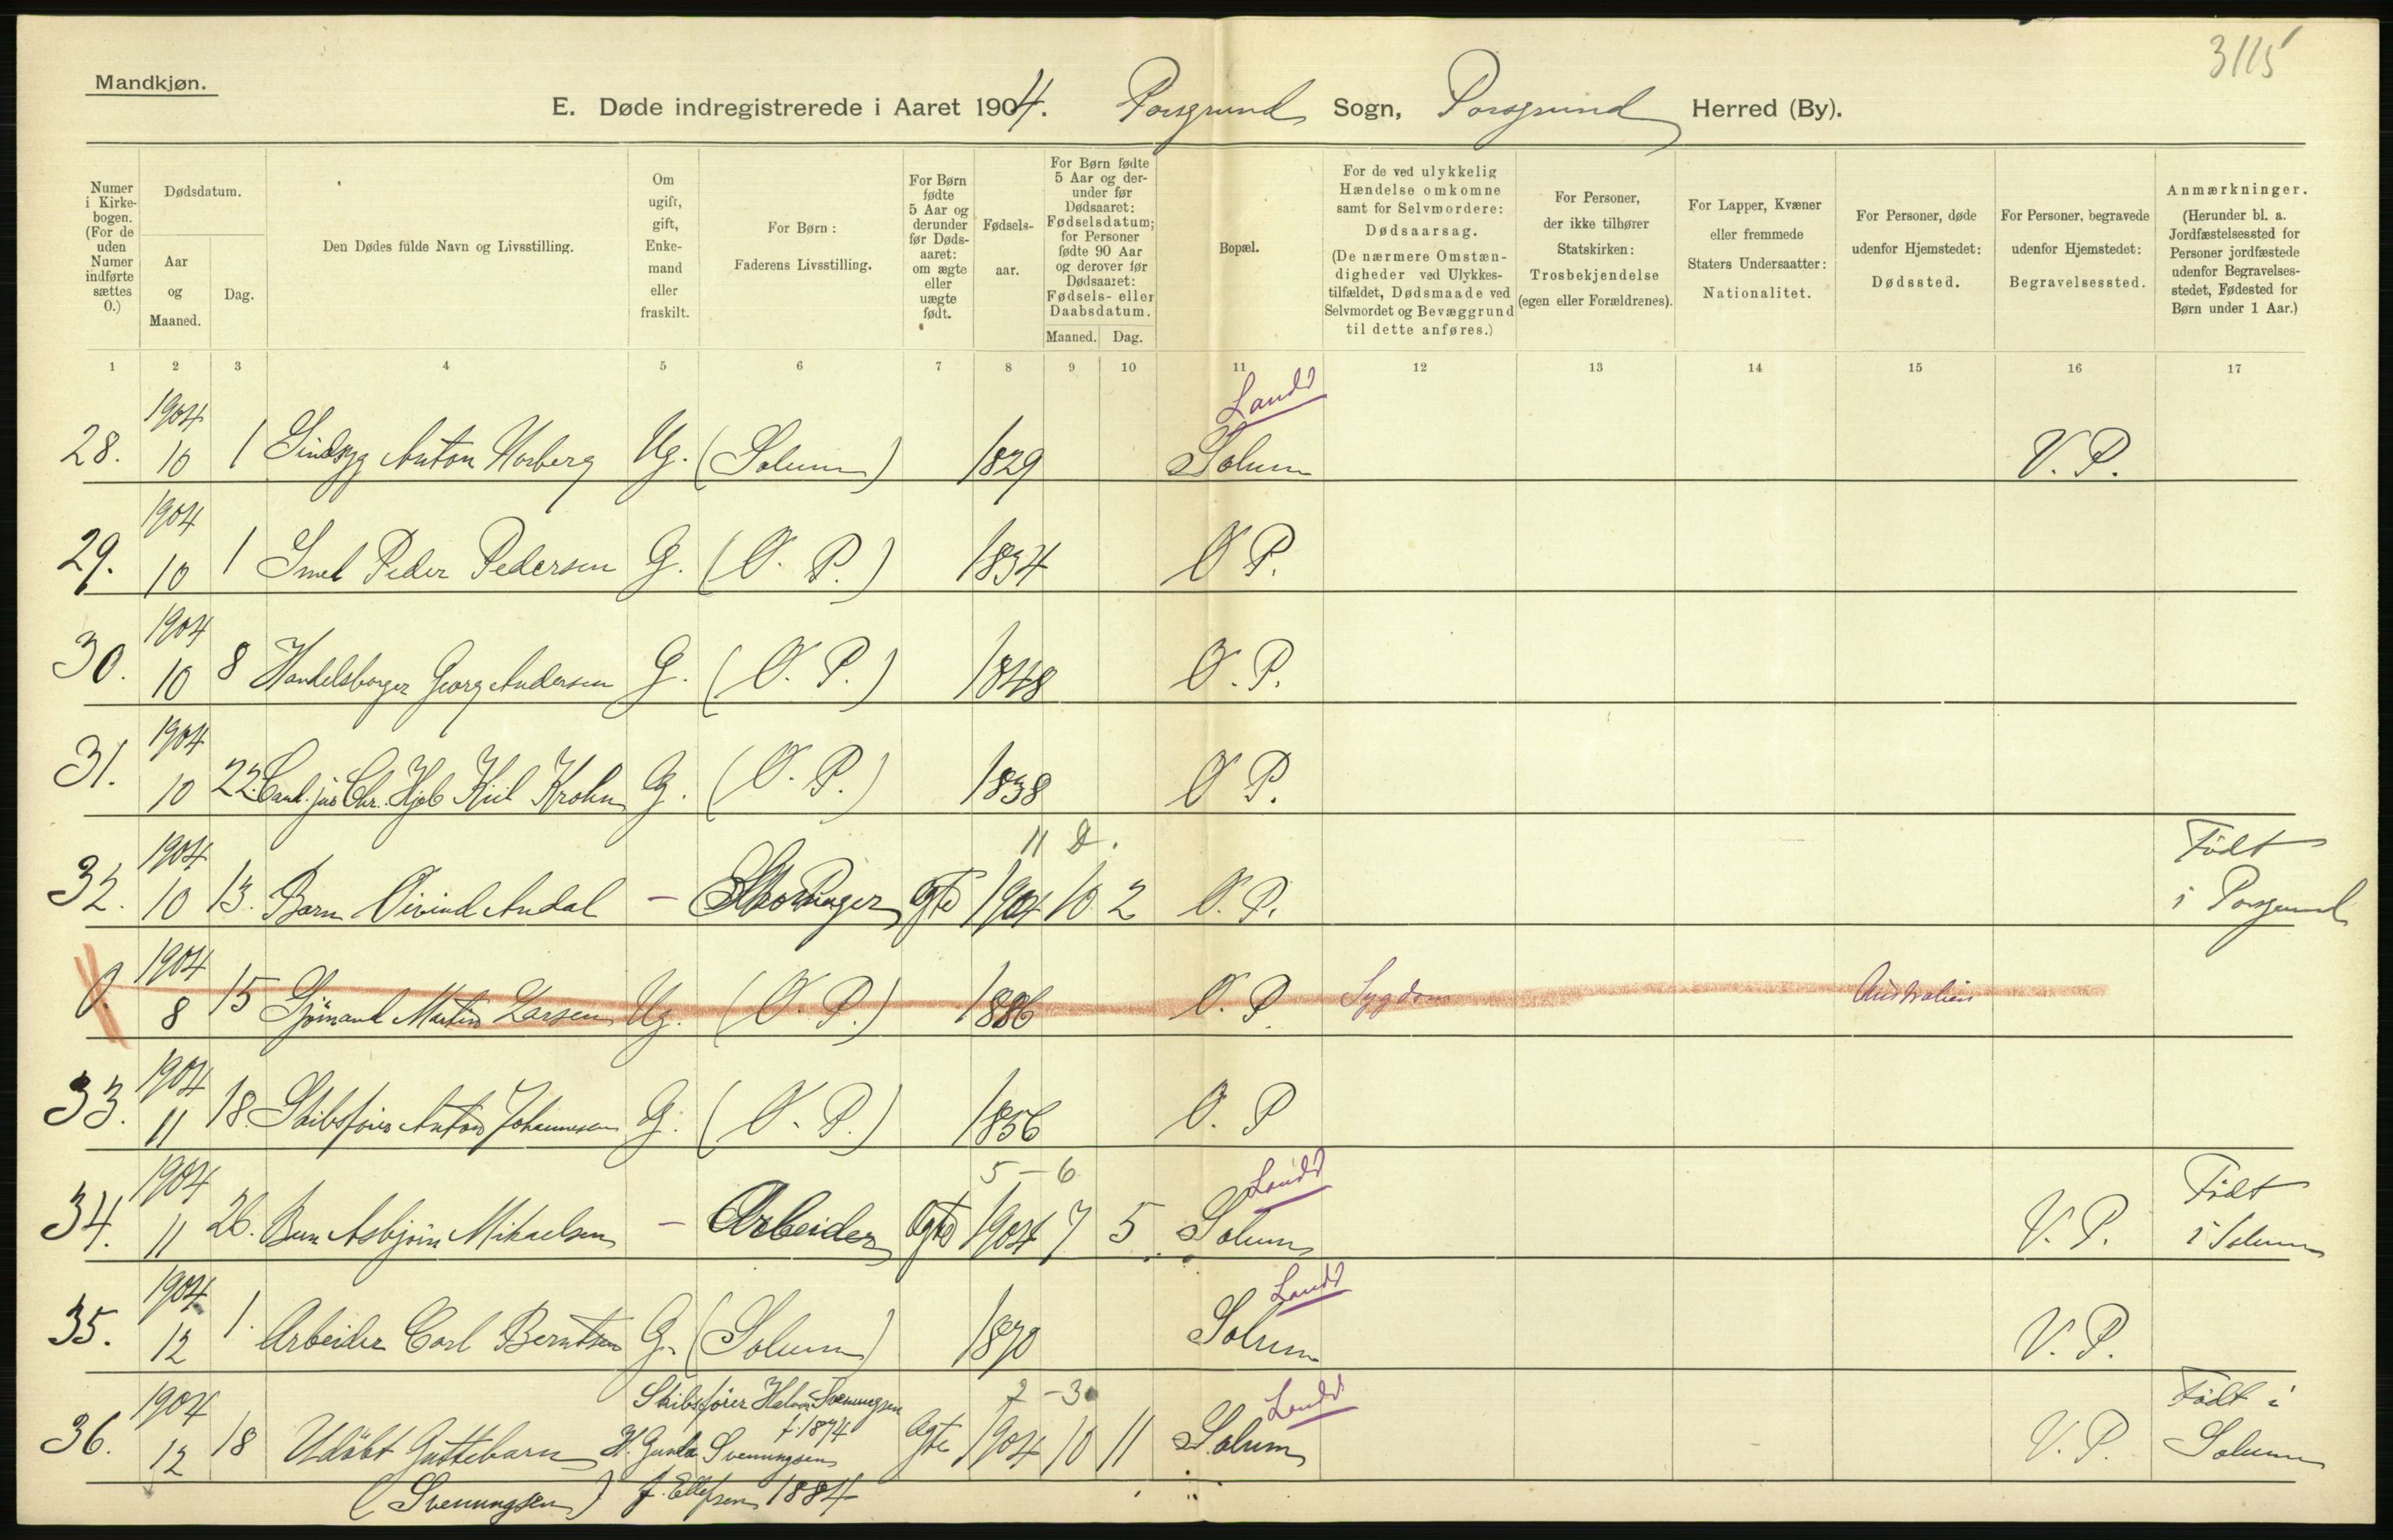 3115
Mandkjøn.
E. Døde indregistrerede i Aaret 1904. Porsgrund Sogn, Porsgrund Herred (By).
Numer i Kirke-bogen. (For de uden Numer indførte sættes 0.)
Dødsdatum.
Aar og Maaned.
Dag.
Den Dødes fulde Navn og Livsstilling.
Om ugift, gift, Enke-mand eller fraskilt.
For Børn: Faderens Livsstilling.
For Børn fødte 5 Aar og derunder før Døds-aaret: om ægte eller uægte født.
Fødsels-aar.
For Børn fødte 5 Aar og der-under før Dødsaaret: Fødselsdatum; for Personer fødte 90 Aar og derover før Dødsaaret: Fødsels- eller Daabsdatum.
Maaned. Dag.
Bopæl.
For de ved ulykkelig Hændelse omkomne samt for Selvmordere: Dødsaarsag. (De nærmere Omstæn-digheder ved Ulykkes-tilfældet, Dødsmaade ved Selvmordet og Bevæggrund til dette anføres.)
For Personer, der ikke tilhører Statskirken: Trosbekjendelse (egen eller Forældrenes).
For Lapper, Kvæner eller fremmede Staters Undersaatter: Nationalitet.
For Personer, døde udenfor Hjemstedet: Dødssted.
For Personer, begravede udenfor Hjemstedet: Begravelsessted.
Anmærkninger. (Herunder bl. a. Jordfæstelsessted for Personer jordfæstede udenfor Begravelses-stedet, Fødested for Børn under 1 Aar.)
1 2 3 4 5 6 7 8 9 10 11 12 13 14 15 16 17
1904 Landd
28. 10 1 Sindsyg Anton Norberg Ug. (Solum) 1829 Solum V. P.
1904
29. 10 1 Smed Peder Pedersen G. (O. P.) 1834 O P.
1904
30. 10 8 Handelsborger Georg Andersen G. (O. P.) 1848 O. P.
1904
31. 10 22. Cand. jur Chr. Hjb Kiil Krohn G. (O. P.) 1838 O P.
1904 11 D. Født
32. 10 13. Barn Öivind Andal - Ægte 1904 10 2 O. P. i Porsgrund
1904
0. 8 15 Sjömand Martin Larsen Ug. (O. P.) 1886 O. P. Sygdom Australien
1904
33. 11 18. Skibsfører Anton Johannesen G. (O. P.) 1856 O. P
1904 5 - 6 Landd Født
34. 11 26. Barn Asbjörn Mikaelsen - Arbeider Ægte 1904 7 5. Solum V. P. i Solum
1904 Landd
35. 12 1. Arbeider Carl Berntsen G. (Solum) 1870 Solum V. P.
1904 Skibsfører Halvor Svenungsen f. 1874 2 - 3 Landd Født i
36. 12 18 Udöbt Guttebarn H. Gunda Svenungsen Ægte 1904 10 11 Solum V. P. Solum
(Svenungsen) f. Ellefsen 1884